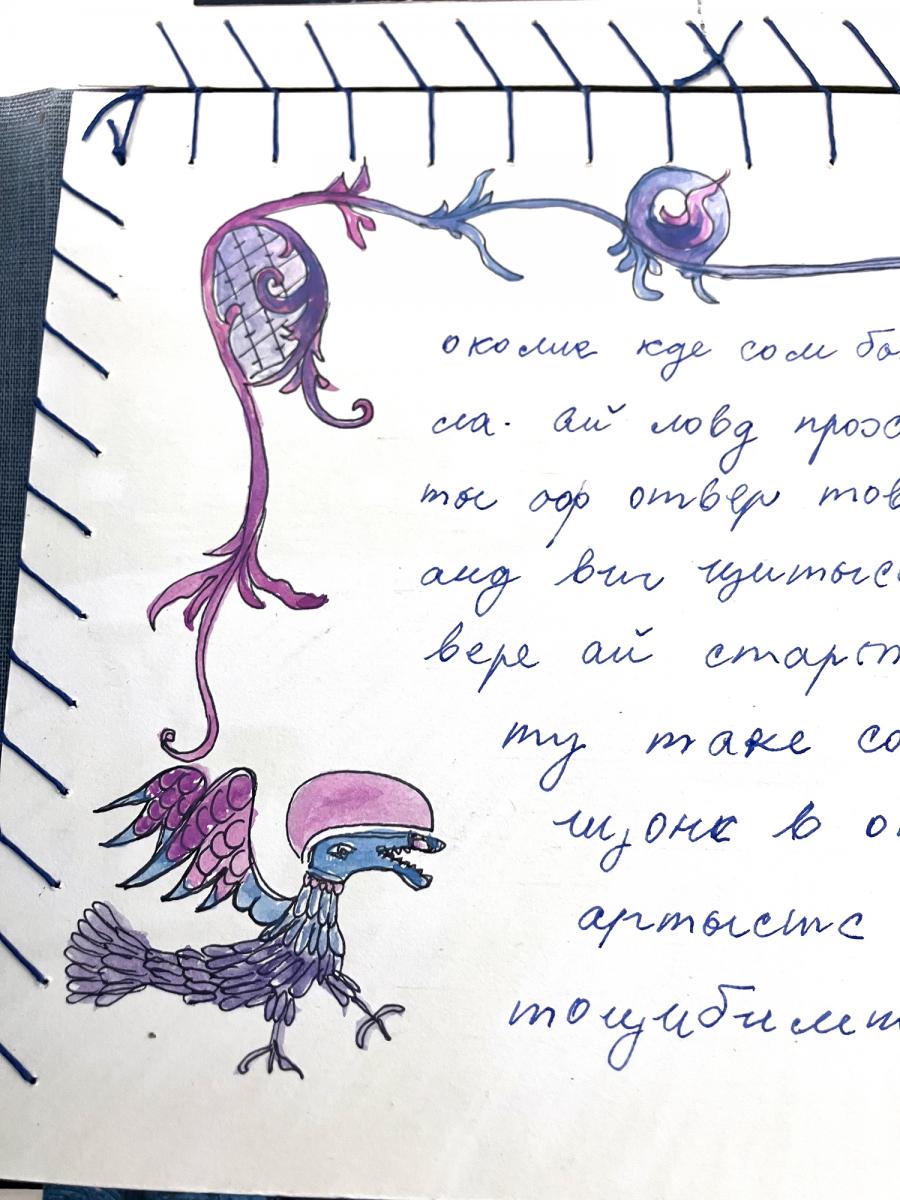 околие кде сом бо
сла. ай ловд прозс
ты оф отвер тов
анд вич щитысс
вере ай старт
ту таке со
щонс в о
артыстс
тощибилт